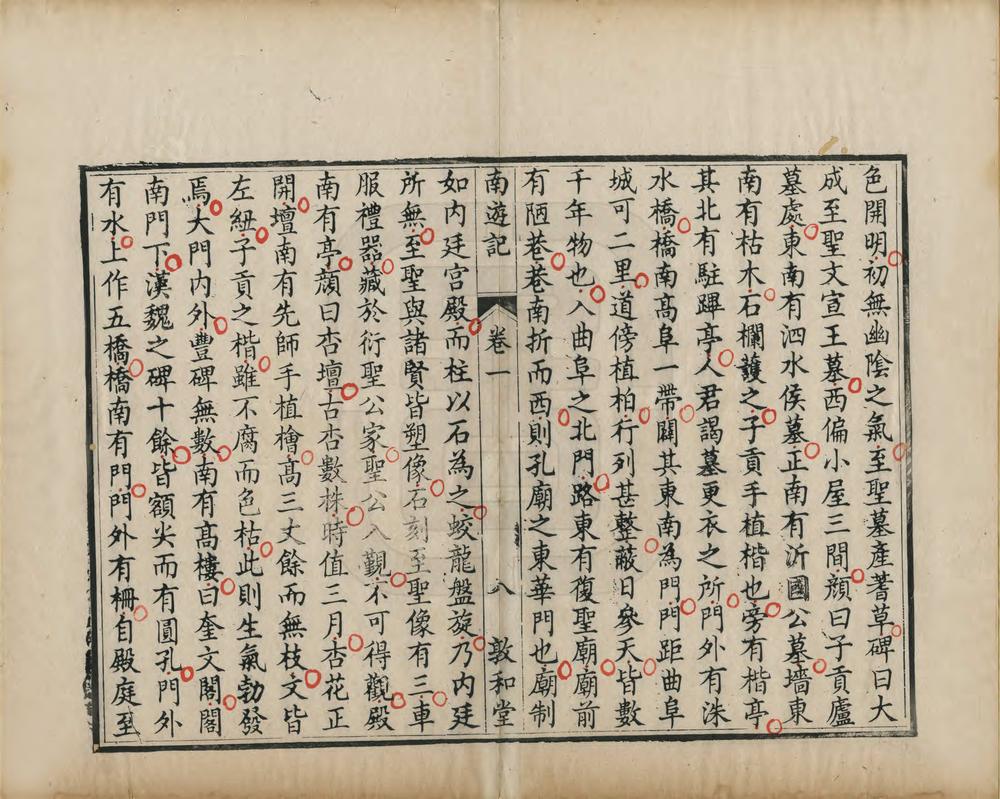 色開明初無幽陰之氣至聖墓產蓍草碑曰大
成至聖文宣王墓西偏小屋三間顔曰子貢廬
墓處東南有泗水侯墓正南有沂國公墓墻東
南有枯木石欄護之子貢手植楷也旁有楷亭
其北有駐蹕亭人君謁墓更衣之所門外有洙
水橋橋南高阜一帶闢其東南為門門距曲阜
城可二里道傍植柏行列甚整蔽日參天皆數
千年物也入曲阜之北門路東有復聖廟廟前
有陋巷巷南折而西則孔廟之東華門也廟制
南遊記 卷一 八 敦和堂
如内廷宫殿而柱以石為之蛟龍盤旋乃内廷
所無至聖與諸賢皆塑像石刻至聖像有三車
服禮器藏於衍聖公家聖公入觀不可得觀殿
南有亭顔曰杏壇古杏數株時值三月杏花正
開壇南有先師手植檜高三丈餘而無枝文皆
左紐子貢之楷雖不腐而色枯此則生氣勃發
焉大門内外豐碑無數南有高樓曰奎文閣閣
南門下漢魏之碑十餘皆額尖而有圓孔門外
有水上作五橋橋南有門門外有柵自殿庭至